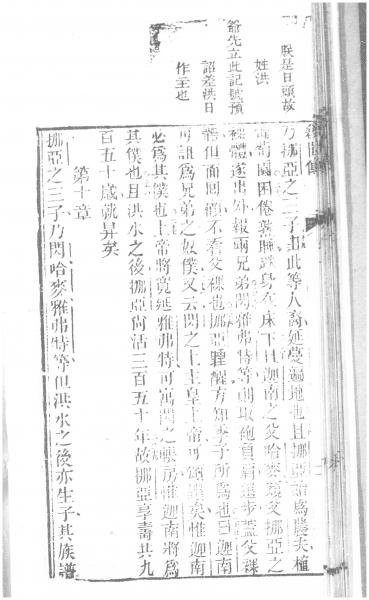 朕是日頭故
姓洪
爺先立此記號預
詔差洪日
作主也
乃挪亞之三子由此等人裔延蔓遍地也且挪亞爲農夫植
葡萄園困倦熟睡跌身在床下且迦南之父哈麥父挪亞之
裸體遂出外報兩兄弟閃雅弗特等卽取袍自肩退步蓋父裸
體但面回顧不看父裸也挪亞醒方知季子所爲也曰迦南
可詛爲兄弟之奴僕又云閃之上主皇上帝可頌讚矣惟迦南
必爲其僕也上帝將寬延雅弗特可寓閃之帳房惟迦南將爲
其僕也且洪水之後挪亞尚活三百五十年故挪亞享壽共九
百五十歲就昇矣
第十章
挪亞之三子乃閃哈麥雅弗特等但洪水之後亦生子其族譜